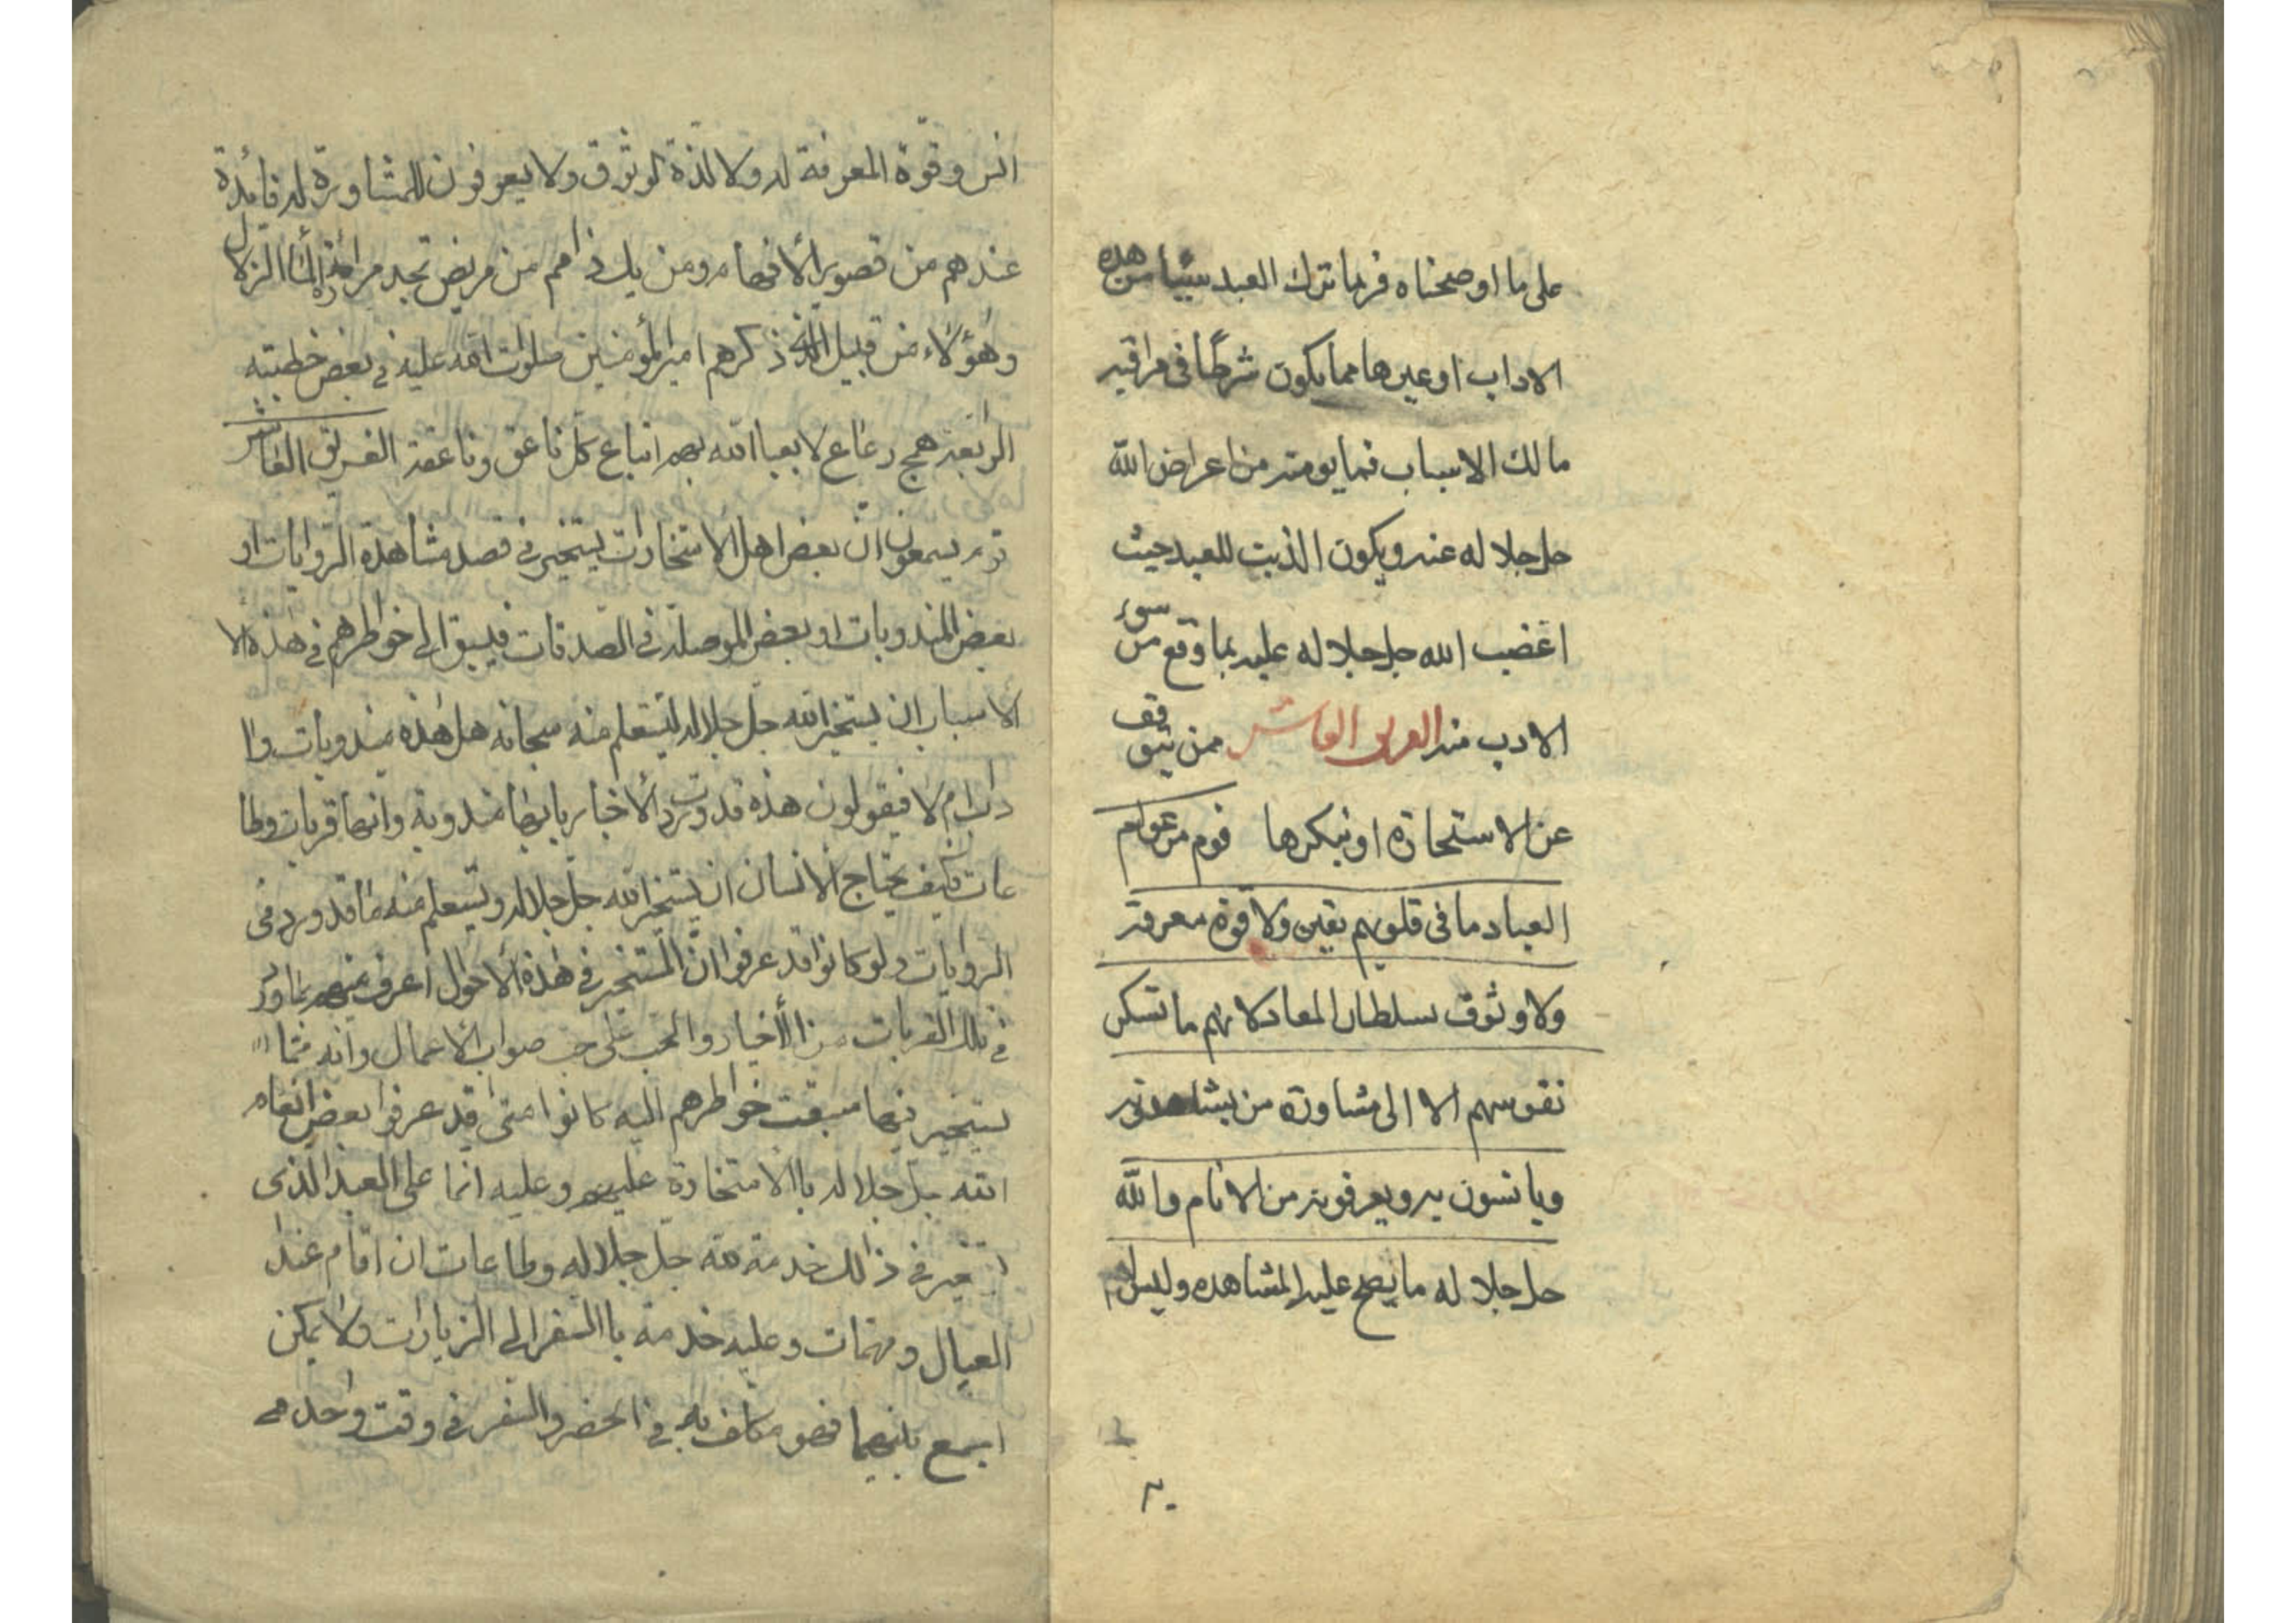 على ما اوضحناه فربما ترك العبد شيئا من هذه
الاداب او غيرها مما يكون شرطا فى مراقبه
مالك الاسباب فما يومنه من اعراض الله
جل جلاله عنه ويكون الذنب للعبد حيث
اغضب الله جل جلاله عليه بما وقع من سوء
الادب منه الفريق العاشر ممن يتوقف
عن الاستخارة او ينكرها قوم من عوام
العباد ما فى قلوبهم يقين ولا قوة معرفة
ولا وثوق بسلطان المعاد لانهم ما تسكن
نفوسهم الا الى مشاورة من يشاهدونه
ويانسون به ويعرفونه من الانام والله
جل جلاله ما يصح عليه المشاهده وليس لهم
٢٠
انس وقوة المعرفة له ولا لذة لوثوق ولا يعرفون للمشاورة له فائدة
عندهم من قصور الأفهام ومن يك ذا فم من مريض تجد مرا به الماء الزلال
وهؤلاء من قبيل الذي ذكرهم امير المؤمنين صلوات الله عليه في بعض خطبته
الرابعة همج رعاع لا يعبأ الله بهم اتباع كل ناعق وناعقة الفريق العاشر
قوم يسمعون ان بعض اهل الاستخارات يستخير في قصد مشاهدة الروايات او
بعض المندوبات او بعض الموصلة في الصدقات فيسبق الى خواطرهم في هذه الا
الأسباب ان يستخير الله جل جلاله ليستعلم منه سبحانه هل هذه مندوبات وا
داب ام لا فيقولون هذه قد وردت الأخبار بانها مندوبة وانها قربات وطا
عات فكيف يحتاج الانسان ان يستخير الله جل جلاله ويستعلم منه ما قد ورد في
الروايات ولو كانوا قد عرفوا ان المستخير في هذه الأحوال اعرف منهم بما ورد
في تلك القربات من الأخبار والحث على صواب الأعمال وانه مما
يستخير فيما سبقت خواطرهم اليه كانوا متى قد عرفوا بعض انعام
الله جل جلاله باالاستخارة عليهم وعليه انما على العبد الذى
يتخير في ذالك خدمة لله جل جلاله وطاعات ان اقام عند
العيال ومهمات وعليه خدمة باالسفر الى الزيارات ولا يمكن
اجمع بينهما فهو مكلف به في الحضر والسفر في وقت واحد